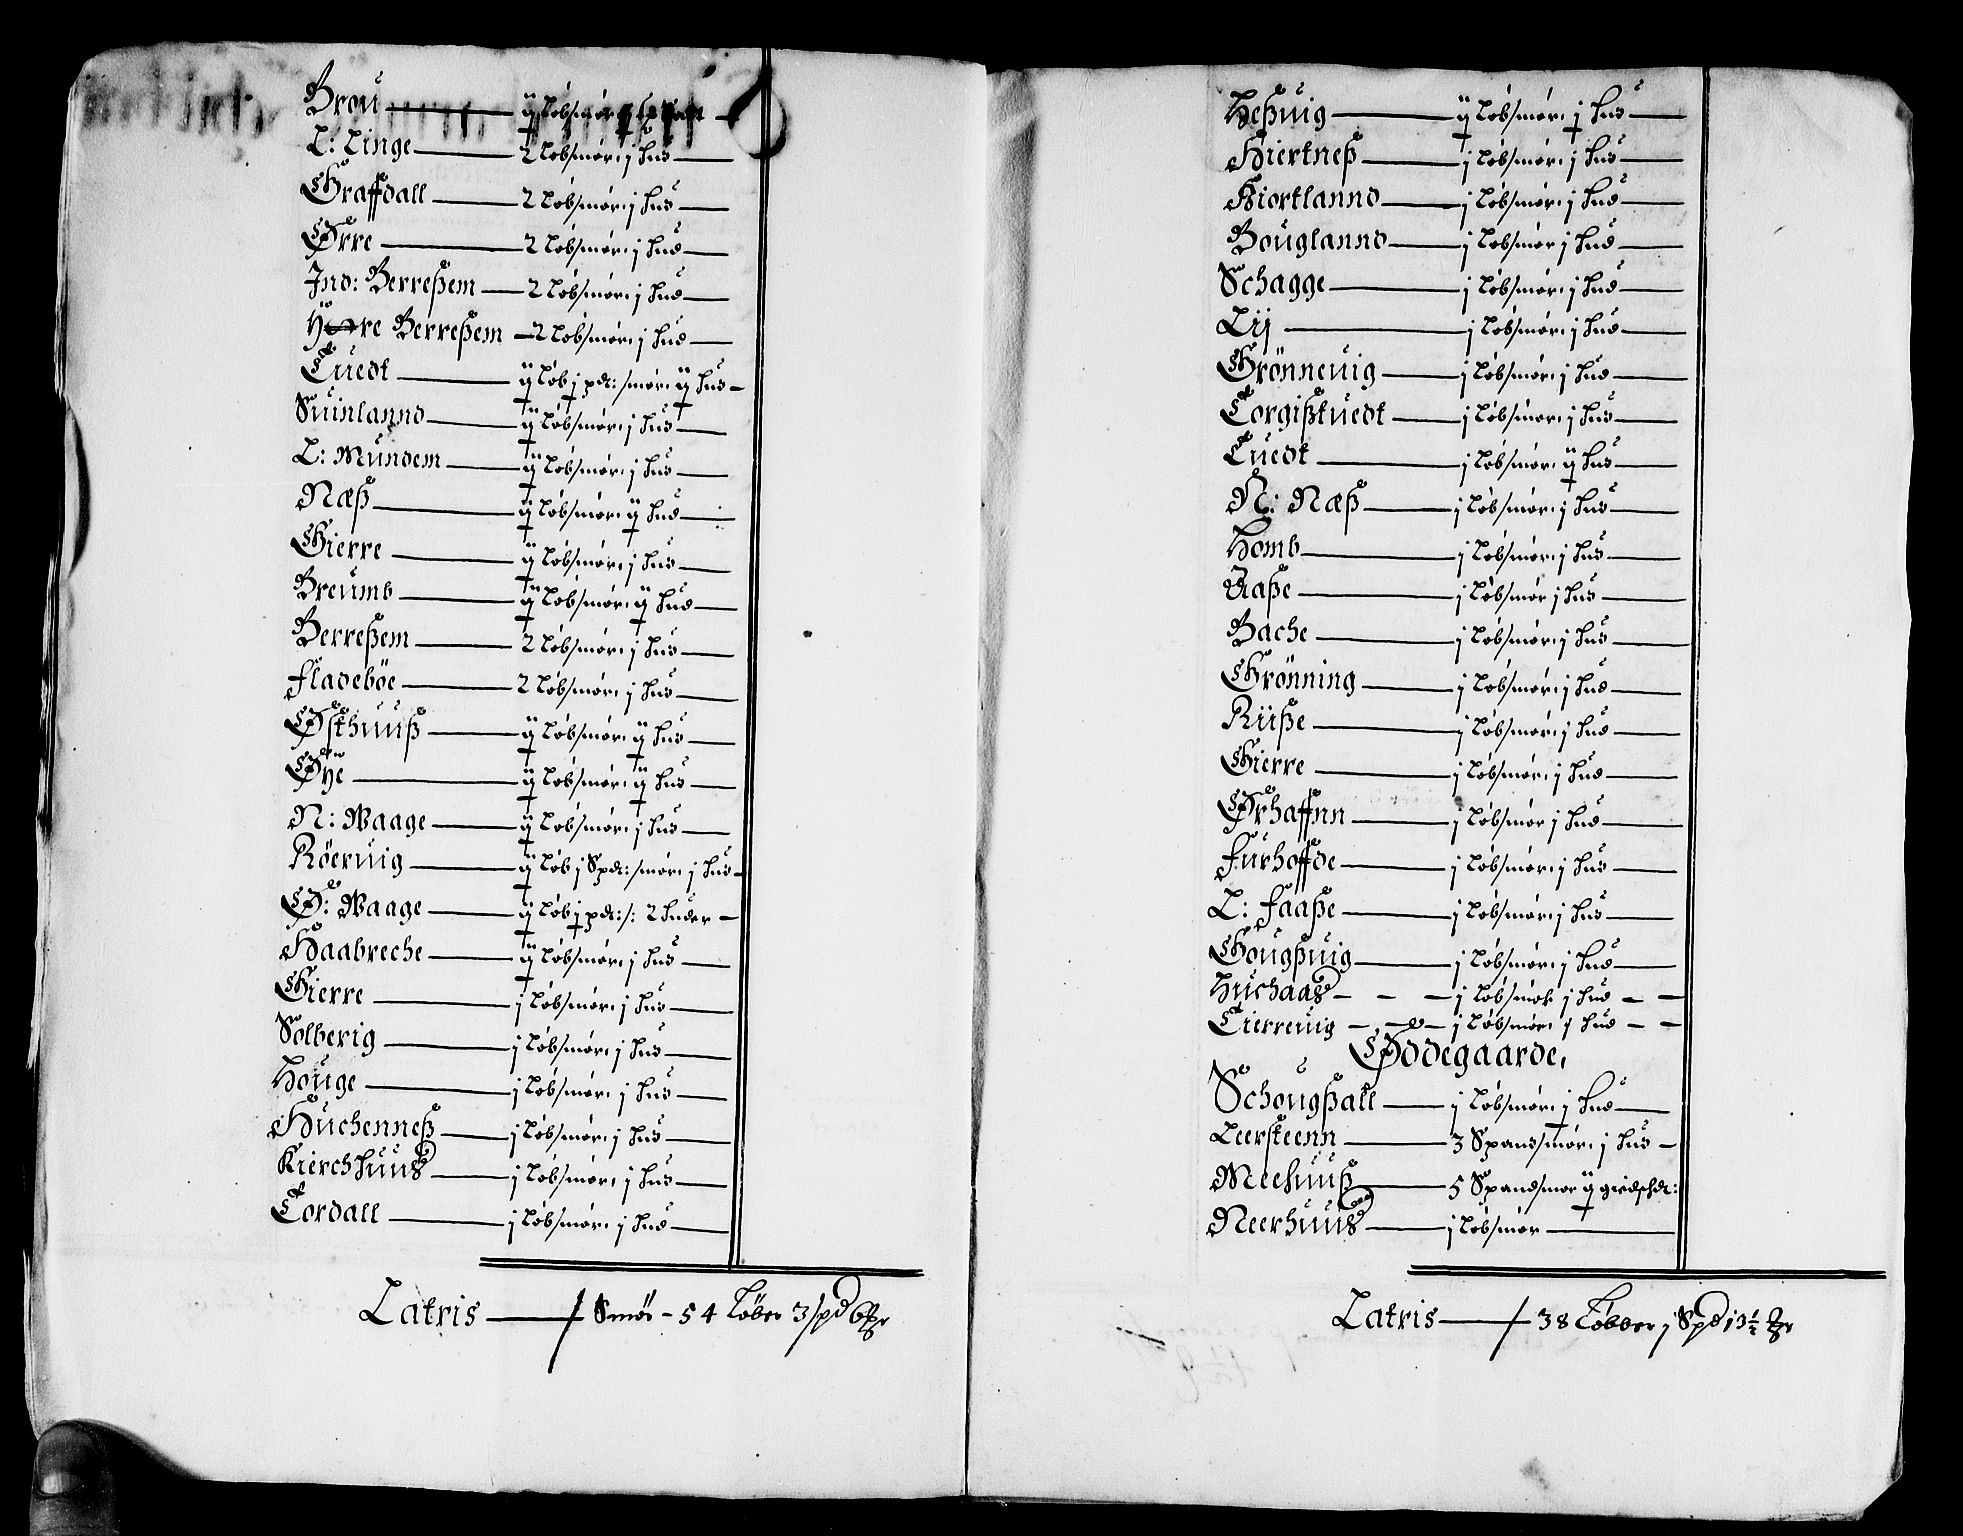 Brou — ij Løbsmør
L: Linge — 2 Løbsmør: j Hud
Graffdall — 2 Løbsmør: j Hud
Ørre — 2 Løbsmør: j Hud
Ind: Berreßem — 2 Løbsmør: j Hud
Berreßem — 2 Løbsmør: j Hud
Tuedt — ij Løb j pd: smør: ij Hud
Suinlannd — ij Løbsmør: j Hud
L: Mundem — ij Løbsmør: j Hud
Næß — ij Løbsmør: ij Hud
Gierre — ij Løbsmør: j Hud
Breumb — ij Løbsmør: ij Hud
Berreßem — 2 Løbsmør: j Hud
Fladebøe — 2 Løbsmør: j Hud
Østhuuß — ij Løbsmør: ij Hud
Øÿe — ij Løbsmør: ij Hud
N: Waage — ij Løbsmør: j Hud
Röeruig — ij Løb j Spd: smør: j Hud
Ø: Waage — ij Løb j pd: s: 2 Huder
Haabreche — ij Løbsmør: j Hud
Gierre — j Løbsmør: j Hud
Solberig — j Løbsmør: j Hud
Houge — j Løbsmør: j Hud
Huchenneß — j Løbsmør: j Hud
Kierchhuus — j Løbsmør: j Hud
Tordall — j Løbsmør: j Hud
Latris — Smør - 54 Løber 3 spd 6
Heßuig — ij Løbsmør: j Hud
Hiertneß — j Løbsmør: j Hud
Hiortlannd — j Løbsmør: j Hud
Bouglannd — j Løbsmør j Hud
Schagge — j Løbsmør: j Hud
Lij — j Løbsmør: j Hud
Grönneuig — j Løbsmør: j Hud
Torgißtuedt — j Løbsmør: j Hud
Tuedt — j Løbsmør: ij Hud
N: Næß — j Løbsmør: j Hud
Homb — j Løbsmør: j Hud
Aaße — j Løbsmør j Hud
Bache — j Løbsmør: j Hud
Grönning — j Løbsmør: j Hud
Riiße — j Løbsmør: j Hud
Gierre — j Løbsmør: j Hud
Ørhaffnn — j Løbsmør j Hud
Furhoffde — j Løbsmør: j Hud
L: Faaße — j Løbsmør: j Hud
Gougßuig — j Løbsmør: j Hud
Huchaas — j Løbsmør j Hud
Tierreuig — j Løbsmør: j Hud
Ødegaarde,
Schougßall — j Løbsmør: j Hud
Leersteenn — 3 Spandsmør: j Hud
Meehuuß — 5 Spandsmør ij
Neerhuus — j Løbsmør
Latris — 38 Løbber j Spd 13½